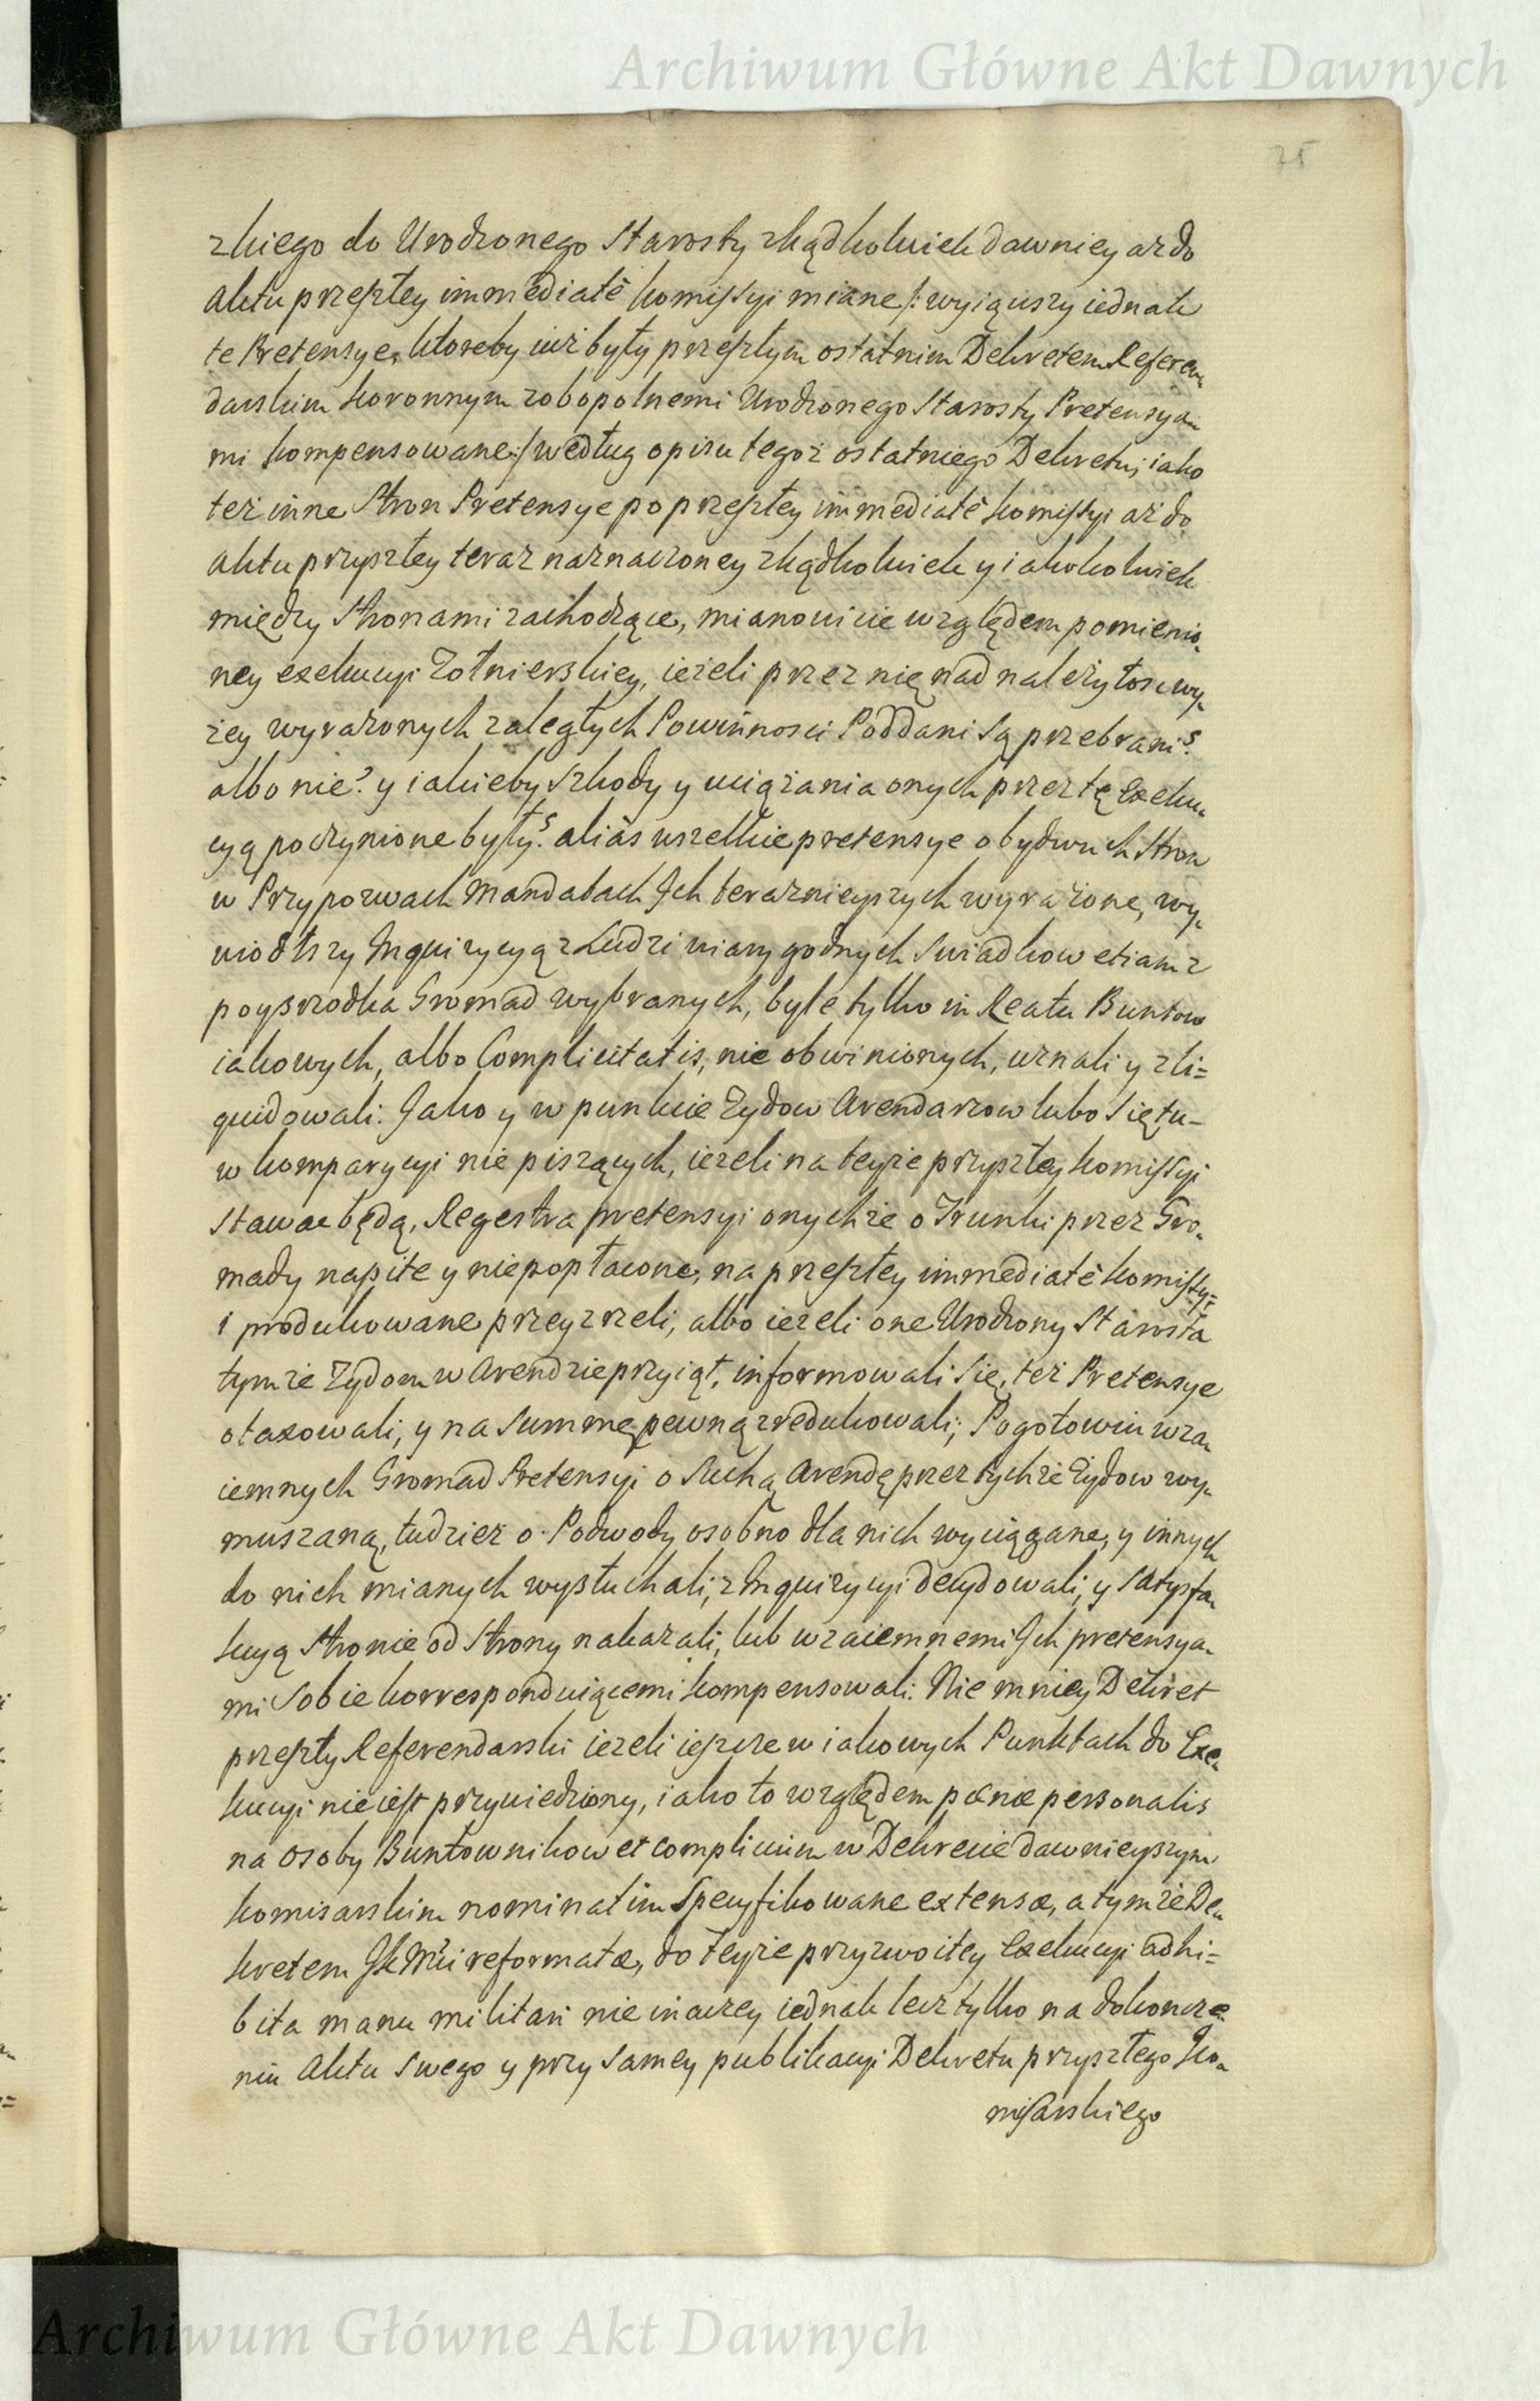 Archiwum Główne Akt Dawnych
75
zkiego do Urodzonego Starosty zkądkolwiek dawniey aż do
aktu przeszłey immediatè komissyi miane /: wyiąwszy iednak
te Pretensye, ktoreby iuż były przeszłym ostatnim Dekretem Referen„
darskim koronnym zobopolnemi Urodzonego Starosty Pretensya„
mi kompensowane :/ według opisu tegoż ostatniego Dekretu, iako
też inne Stron Pretensye po przeszłey immediatè komissyi aż do
aktu przyszłey teraz naznaczoney zkądkolwiek y iakokolwiek
między Stronami zachodzące, mianowicie względem pomienio„
ney exekucyi Zołnierskiey, ieżeli przez nię nad należytosc wy„
żey wyrażonych zaległych Powinnosci Poddani są przebrani?
albo nie? y iakieby szkody y uciążania onych przez tę Exeku„
cyą poczynione były? aliàs wszelkie pretensye obydwuch Stron
w Przypozwach Mandatach Ich teraznieyszych wyrażone, wy„
wiodłszy Inquizycyą z Ludzi wiary godnych Swiadkow etiam z
poysrzodka Gromad wybranych, byle tylko in Reatu Buntow
iakowych, albo Complicitatis, nie obwinionych, uznali y zli=
quidowali. Jako y w punkcie Zydow Arendarzow lubo się tu-
w komparycyi nie piszących, ieżeli na teyże przyszłey komissyi
stawac będą, Regestra pretensyi onychże o Trunki przez Gro„
mady napite y niepopłacone, na przeszłey immediatè komissy=
i produkowane przeyzrzeli, albo ieżeli one Urodzony Starosta
tymże Zydom w Arendzie przyiął, informowali się, też Pretensye
otaxowali, y na summę pewną zredukowali; Pogotowiu wza„
iemnych Gromad Pretensyi o suchą Arendę przez tychże Zydow wy„
muszaną, tudzież o Podwody osobno dla nich wyciągane, y innych
do nich mianych wysłuchali, z Inquizycyi decydowali, y satysfa„
kcyą Stronie od Strony nakazali, lub wzaiemnemi Ich pretensya„
mi sobie korrespondującemi kompensowali. Nie mniey Dekret
przeszły Referendarski ieżeli ieszcze w iakowych Punktach do Exe„
kucyi nie iest przywiedziony, iako to względem pænæ personalis
na osoby Buntownikow et complicium w Dekrecie dawnieyszym
komisarskim nominatim specyfikowane extensæ, a tymże De„
kretem JKMci reformatæ, do teyże przyzwoitey Exekucyi adhi=
bita manu militari nie inaczey iednak lecz tylko na dokoncze„
niu Aktu swego y przy samey publikacyi Dekretu przyszłego ko„
misarskiego
Archiwum Główne Akt Dawnych